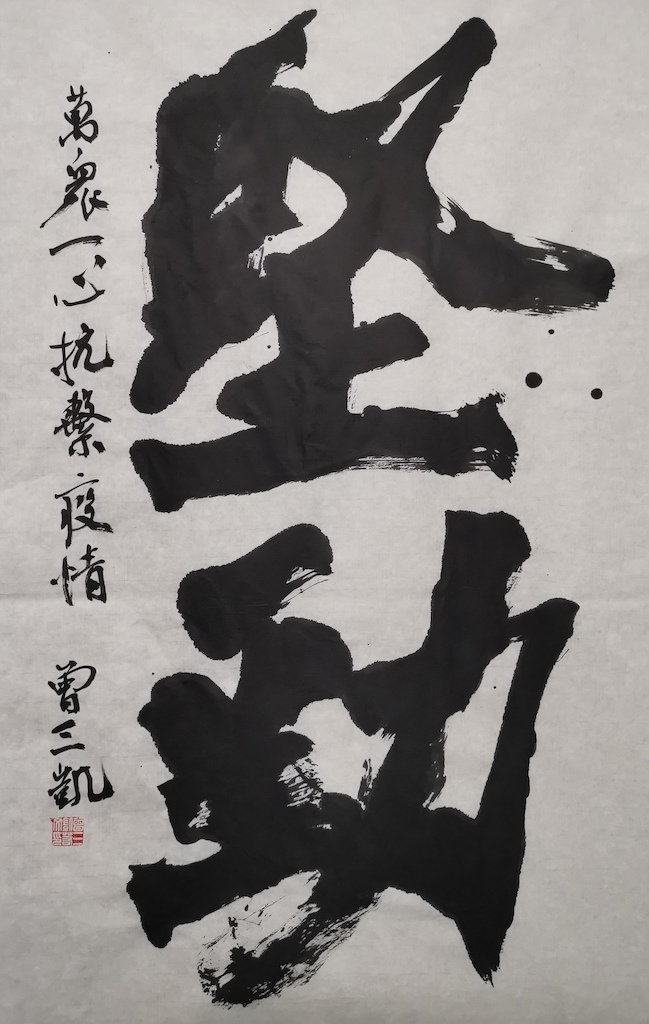 堅勁
萬眾一心抗繫疫情
曾三凱